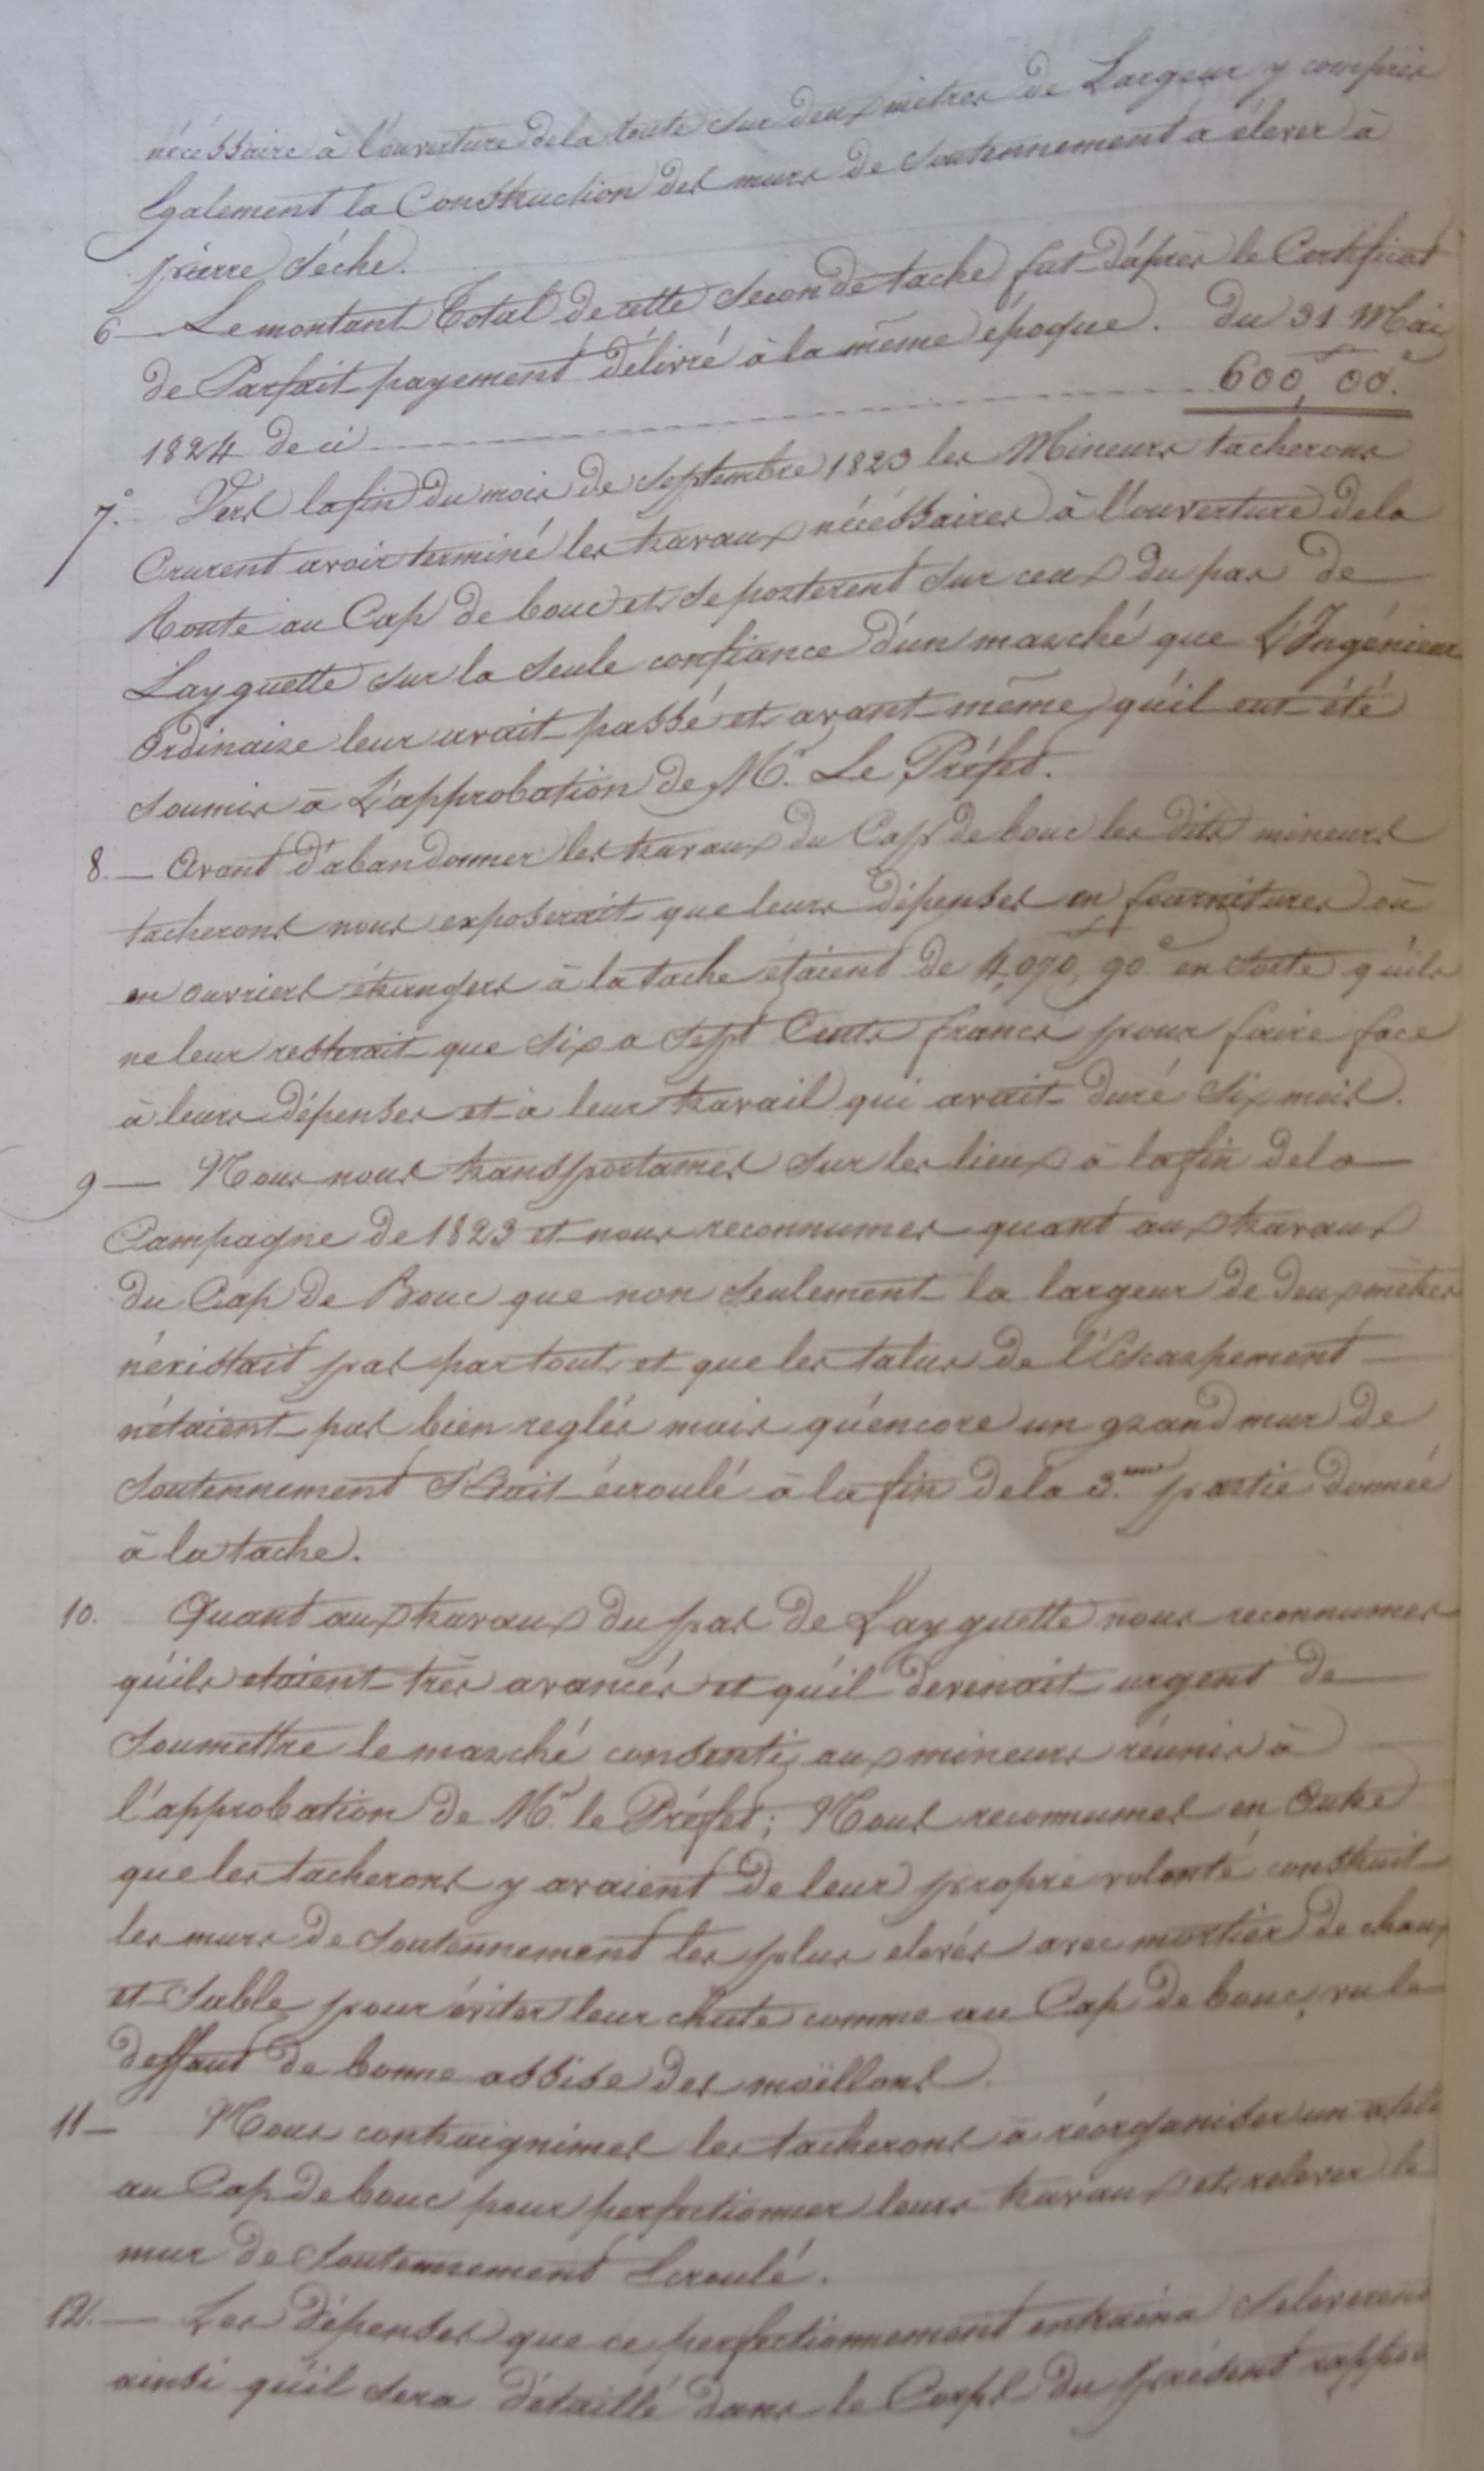 nécéssaire à l'ouverture de la route sur deux mètres de Largeur y compris
Egalement la Construction des murs de Soutennement a élever à
pierre séche.
6 — Le montant Total de cette seconde tache fut d'après le Certificat
de Parfait payement délivré à la même époque. du 31 Mai
1824 de ci 600f, 00c.
7.° Vers la fin du mois de Septembre 1823 les Mineurs tacherons
Crurent avoir terminé les travaux nécéssaires à l'ouverture de la
Route au Cap de bouc et se porterent sur ceux du pas de
Layguette sur la seule confiance d'un marché que L'Ingénieur
Ordinaire leur avait passé et avant même qu'il eut été
soumis à L'approbation de Mr. Le Préfet.
8. — Avant d'abandonner les travaux du Cap de bouc les dits mineurs
tacherons nous exposerait que leurs dépenses en fournitures ou
en ouvriers étrangers à la tache étaient de 4,090f, 90c en sorte qu'ils
ne leur resterait que six a sept Cents francs pour faire face
à leurs dépenses et à leur travail qui avait duré six mois.
9 — Nous nous transportames sur les lieux à la fin de la
Campagne de 1823 et nous reconnumes quant aux travaux
du Cap de Bouc que non seulement la largeur de deux mètres
n'éxistait pas partout et que les talus de l'Escarpement
n'étaient pas bien reglés mais qu'encore un grand mur de
Soutennement S'Etait écroulé à la fin de la 3.eme partie donneé
à la tache.
10. Quant aux travaux du pas de Layguette nous reconnumes
qu'ils etaient très avancés et qu'il devenait urgent de
soumettre le marché consenti aux mineurs réunis à
l'approbation de Mr. le Préfet; Nous reconnumes en Outre
que les tacherons y avaient de leur propre volonté construit
les murs de Soutennement les plus elevés avec mortier de chaux
et Sable pour éviter leur chute comme au Cap de bouc, vu le
deffaut de bonne assise des moëllons.
11 — Nous contraignimes les tacherons à réorganiser un
au Cap de bouc pour perfectionner leurs travaux et relever le
mur de Soutennement Ecroulé.
12. — Les dépenses que ce perfectionnement entraina s'eleverent
ainsi qu'il sera détaillé dans le Corps du présent rapport